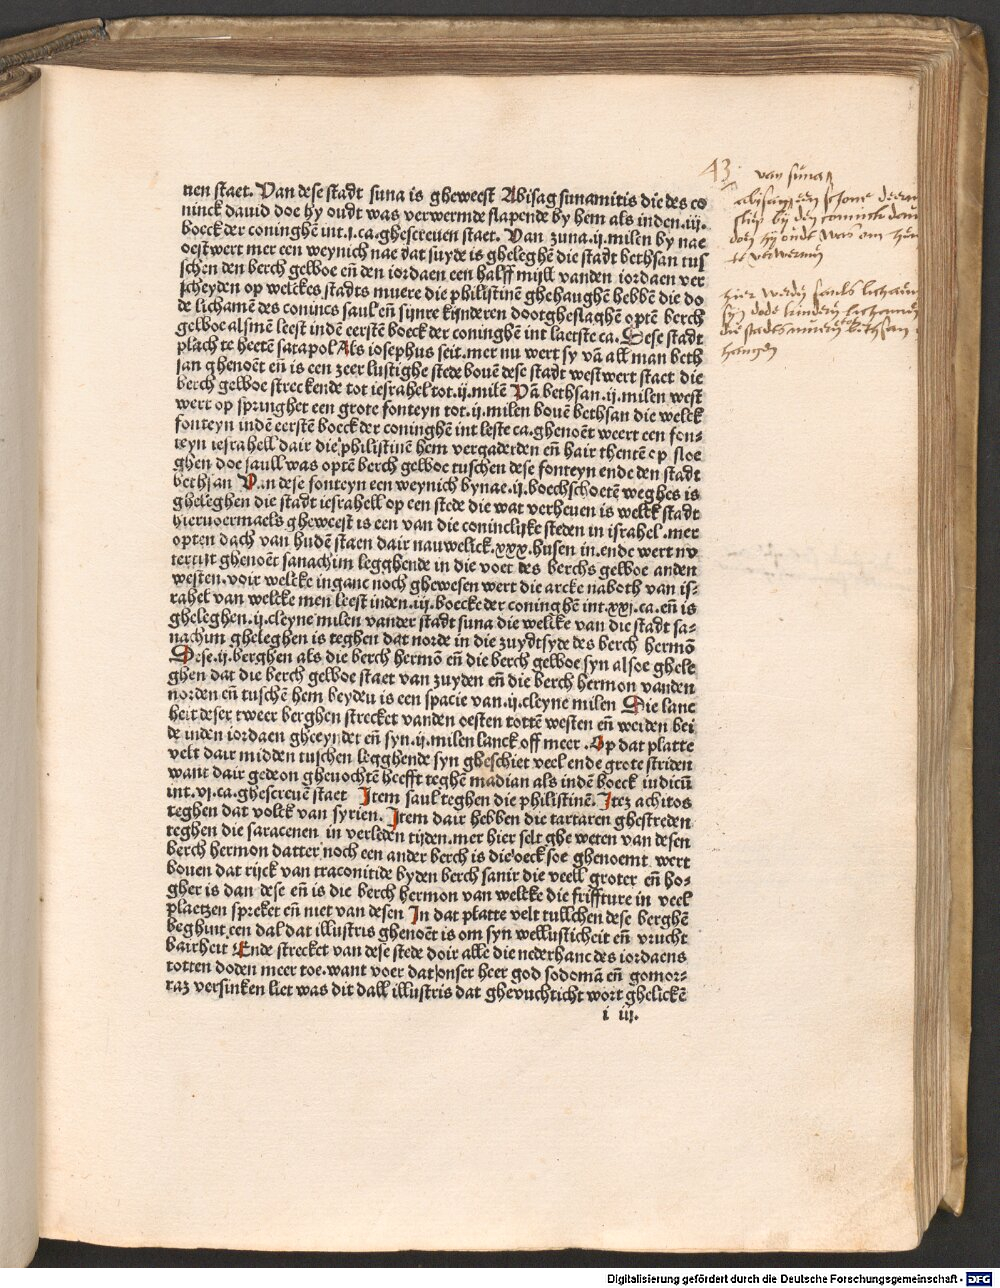 nen staet. Van dese stadt suna is gheweest Abisag sunamitis die des co
ninck dauid doe hy oudt was verwermde slapende by hem als inden .iij.
boeck der coninghē int .i. ca. ghescreuen staet. Van zuna .ij. milen by nae
oestwert mer een weynich nae dat suyde is gheleghē die stadt bethsan tus
schen den berch gelboe eñ den iordaen een halff mijll vanden iordaen ver
scheyden op welckes stadts muere die philistinē ghehaughē hebbē die do
de lichamē des conincs saul eñ sijnre kijnderen dootgheslaghē optē berch
gelboe alsmē leest indē eerstē boeck der coninghē int laetste ca. Dese stadt
plach te heetē satapol Als iosephus seit. mer nu wert sy vā all man beth
san ghenoēt eñ is een zeer lustighe stede bouē dese stadt westwert staet die
berch gelboe streckende tot iesrahel tot .ij. milē Vā bethsan .ij. milen west
wert op springhet een grote fonteyn tot .ij. milen bouē bethsan die welck
fonteyn indē eerstē boeck der coninghē int leste ca. ghenoēt weert een fon-
teyn iesrahell dair die philistinē hem vergaderden eñ hair thentē op sloe
ghen doe saull was optē berch gelboe tuschen dese fonteyn ende den stadt
bethsan Van dese fonteyn een weynich bynae .ij. boechschoetē weghes is
gheleghen die stadt iesrahell op een stede die wat verheuen is welck stadt
hiernoermaels gheweest is een van die coninclijke steden in israhel. mer
opten dach van hudē staen dair nauwelick .xxx. husen in. ende wert nv
tertijt ghenoēt sanachim legghende in die voet des berchs gelboe anden
westen. voir welcke inganc noch ghewesen wert die arcke naboth van is-
rahel van welcke men leest inden .iij. boecke der coninghē int .xxj. ca. eñ is
gheleghen .ij. cleyne milen vander stadt suna die welke van die stadt sa-
nachim gheleghen is teghen dat norde in die zuydtsyde des berch hermō
Dese .ij. berghen als die berch hermō eñ die berch gelboe syn alsoe ghele
ghen dat die berch gelboe staet van zuyden eñ die berch hermon vanden
norden eñ tuschē hem beyden is een spacie van .ij. cleyne milen Die lanc
heit deser tweer berghen strecket vanden oesten tottē westen eñ weiden bei
de inden iordaen gheeyndet eñ syn .ij. milen lanck off meer. Op dat platte
velt dair midden tuschen legghende syn gheschiet veel ende grote striden
want dair gedeon gheuochtē heefft teghē madian als indē boeck iudicū
int .vj. ca. ghescreuē staet Item saul teghen die philistinē. Itez achitos
teghen dat volck van syrien. Item dair hebben die tartaren ghestreden
teghen die saracenen in verleden tijden. mer hier selt ghe weten van desen
berch hermon datter noch een ander berch is die oeck soe ghenoemt wert
bouen dat rijck van traconitide byden berch sanir die veell groter eñ ho-
gher is dan dese eñ is die berch hermon van welcke die friffture in veel
plaetzen spreket eñ niet van desen In dat platte velt tusschen dese berghē
beghint een dal dat illustris ghenoēt is om syn wellusticheit eñ vrucht
bairheit Ende strecket van dese stede doir alle die nederhant des iordaens
totten doden meer toe. want voer dat onser heer god sodomā eñ gomor-
raz versinken liet was dit dall illustris dat ghevuchticht wort ghelickē
i iij.
43
van suna
abisag een schone deern
sliep bij den coninck
doen hij oudt was om hem
te verwermen
hier werden sauls licham
syn dode kinderen lichamen
die stadts mueren bethsan
hangen
Digitalisierung gefördert durch die Deutsche Forschungsgemeinschaft - DFG